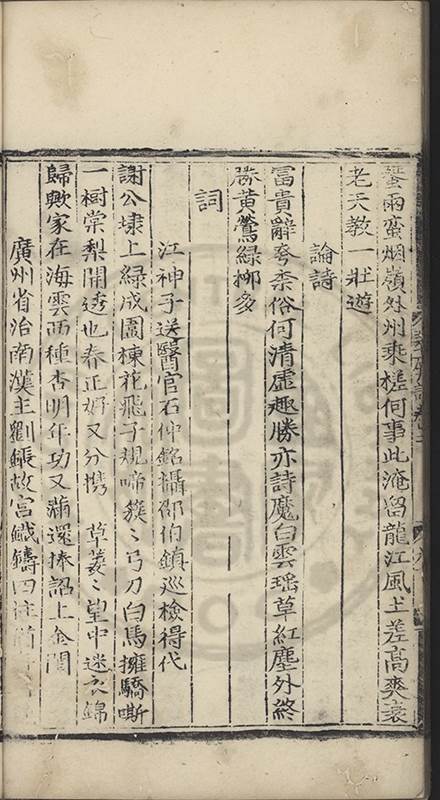 蜑雨蠻烟嶺外州乘槎何事此淹留龍江風土差高爽衰
老天教一壯遊
論詩
冨貴辭夸柰俗何清虛趣勝亦詩魔白雲瑶草紅塵外終
勝黄鶯緑栁多
詞
江神子送醫官石仲銘攝邵伯鎮巡檢得代
謝公埭上緑成圍楝花飛子規啼簇〻弓刀白馬擁驕嘶
一樹棠梨開透也春正好又分携　草萋〻望中迷衣錦
歸歟家在海雲西種杏明年功又滿還捧詔上金閨
廣州省治南漢主劉鋹故宫鐵鑄四柱